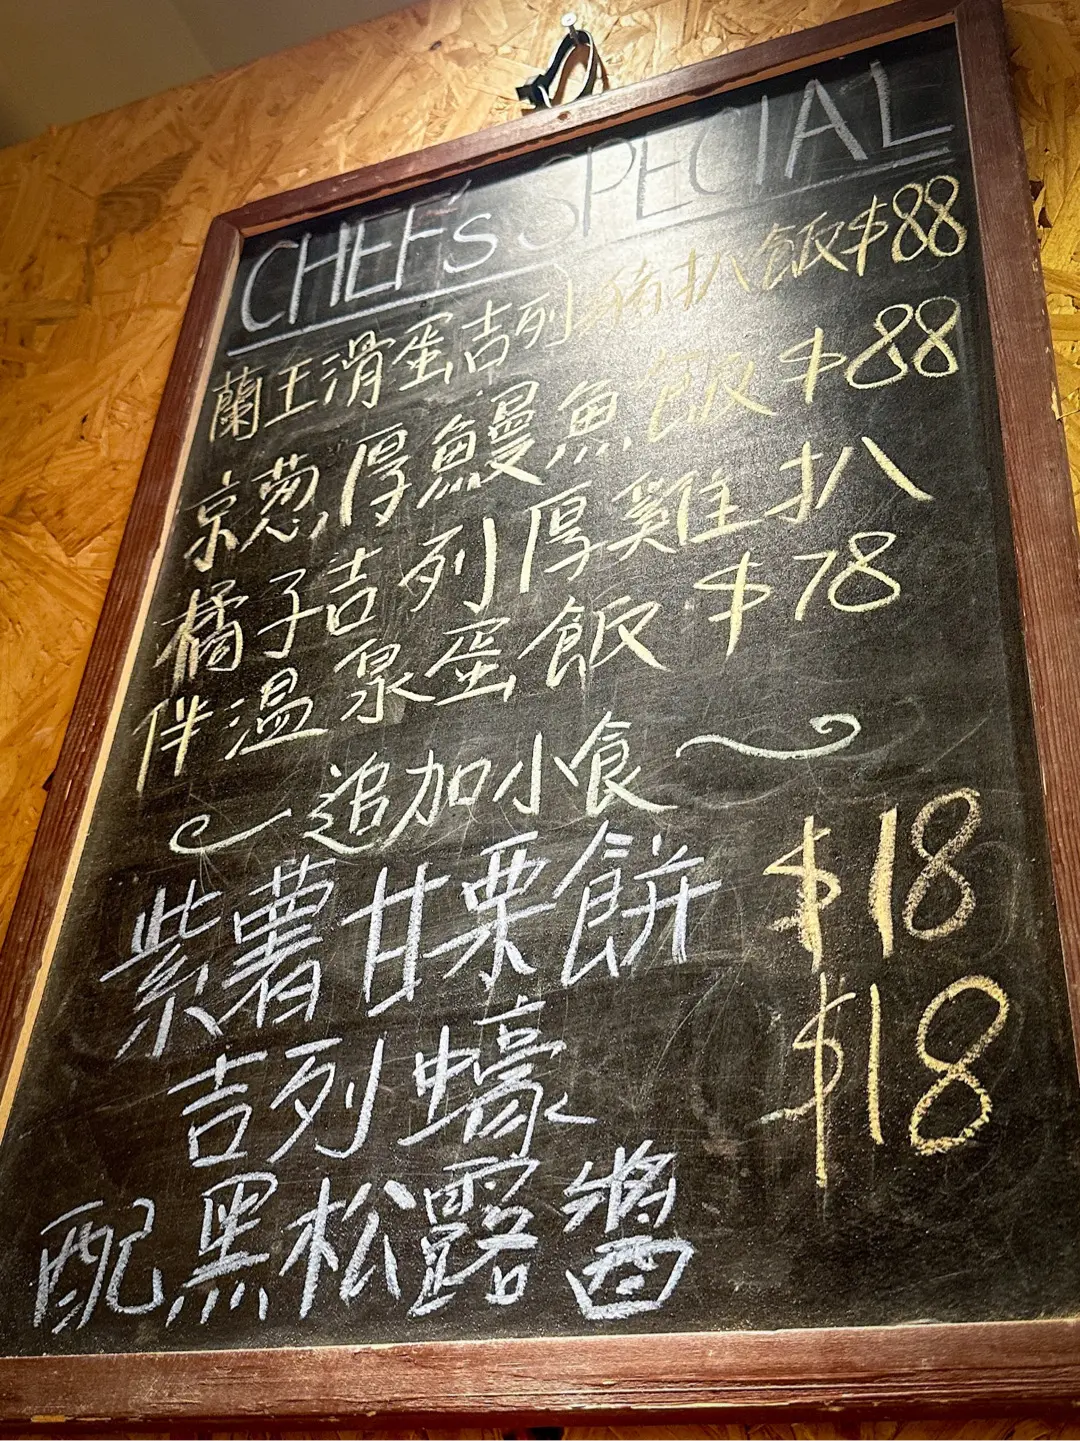 CHEF'S SPECIAL
蘭王滑蛋吉列豬扒飯$88
京葱厚鰻魚飯$88
橘子吉列厚雞扒
伴溫泉蛋飯$78
追加小食
紫薯甘栗餅 $18
吉列蠔 $18
配黑松露醬